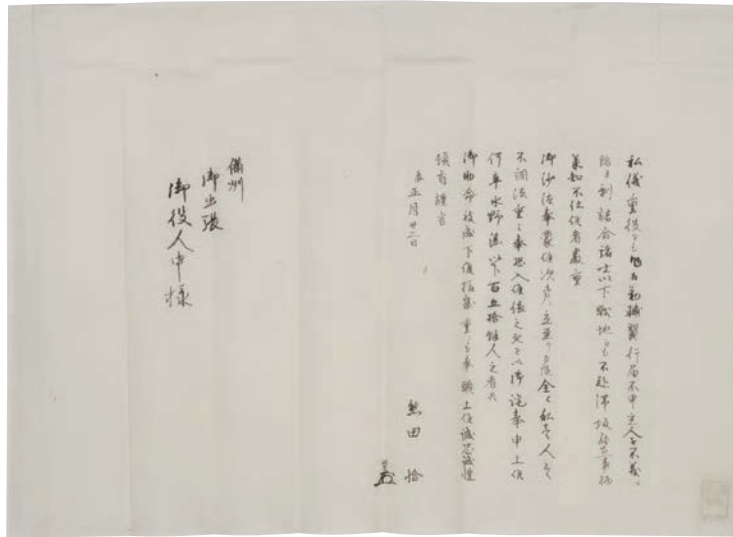 私儀重役をも相勤輔翼行届不申主人を不義
剰諸士以下戦地も不
承知不仕候者厳重
御沙汰奉蒙候次第ニ立至り候段全く私壱人之
不調法重々奉恐入候依之死を以御詫奉申上候
何卒水野湛以下百五拾余人之者共
御助命被成下候様幾重ニも奉願上候誠恐誠惶
頓首謹言
正月廿二日
熊田 恰
備州
御出張
御役人中様